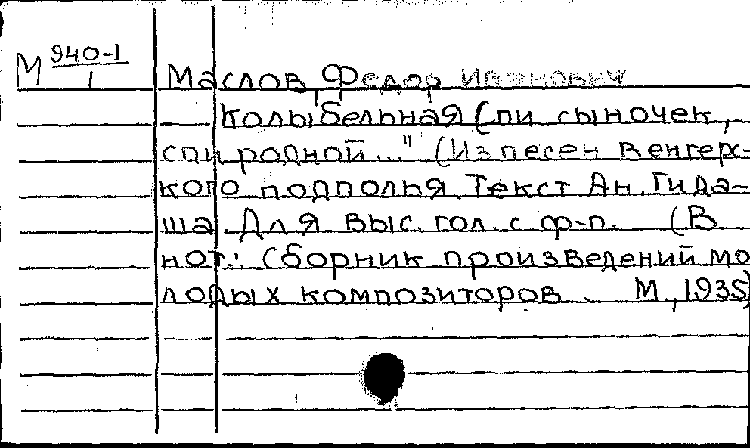 М 940-1
1
Маслов, Федор Иванович
Колыбельная (спи сыночек,
спи родной..." (Из песен Венгерс-
кого подполья. Текст Ан. Гида-
ша Для выс. гол. с ф-п. (В
нот.: Сборник произведений мо
лодых композиторов. М, 1935)